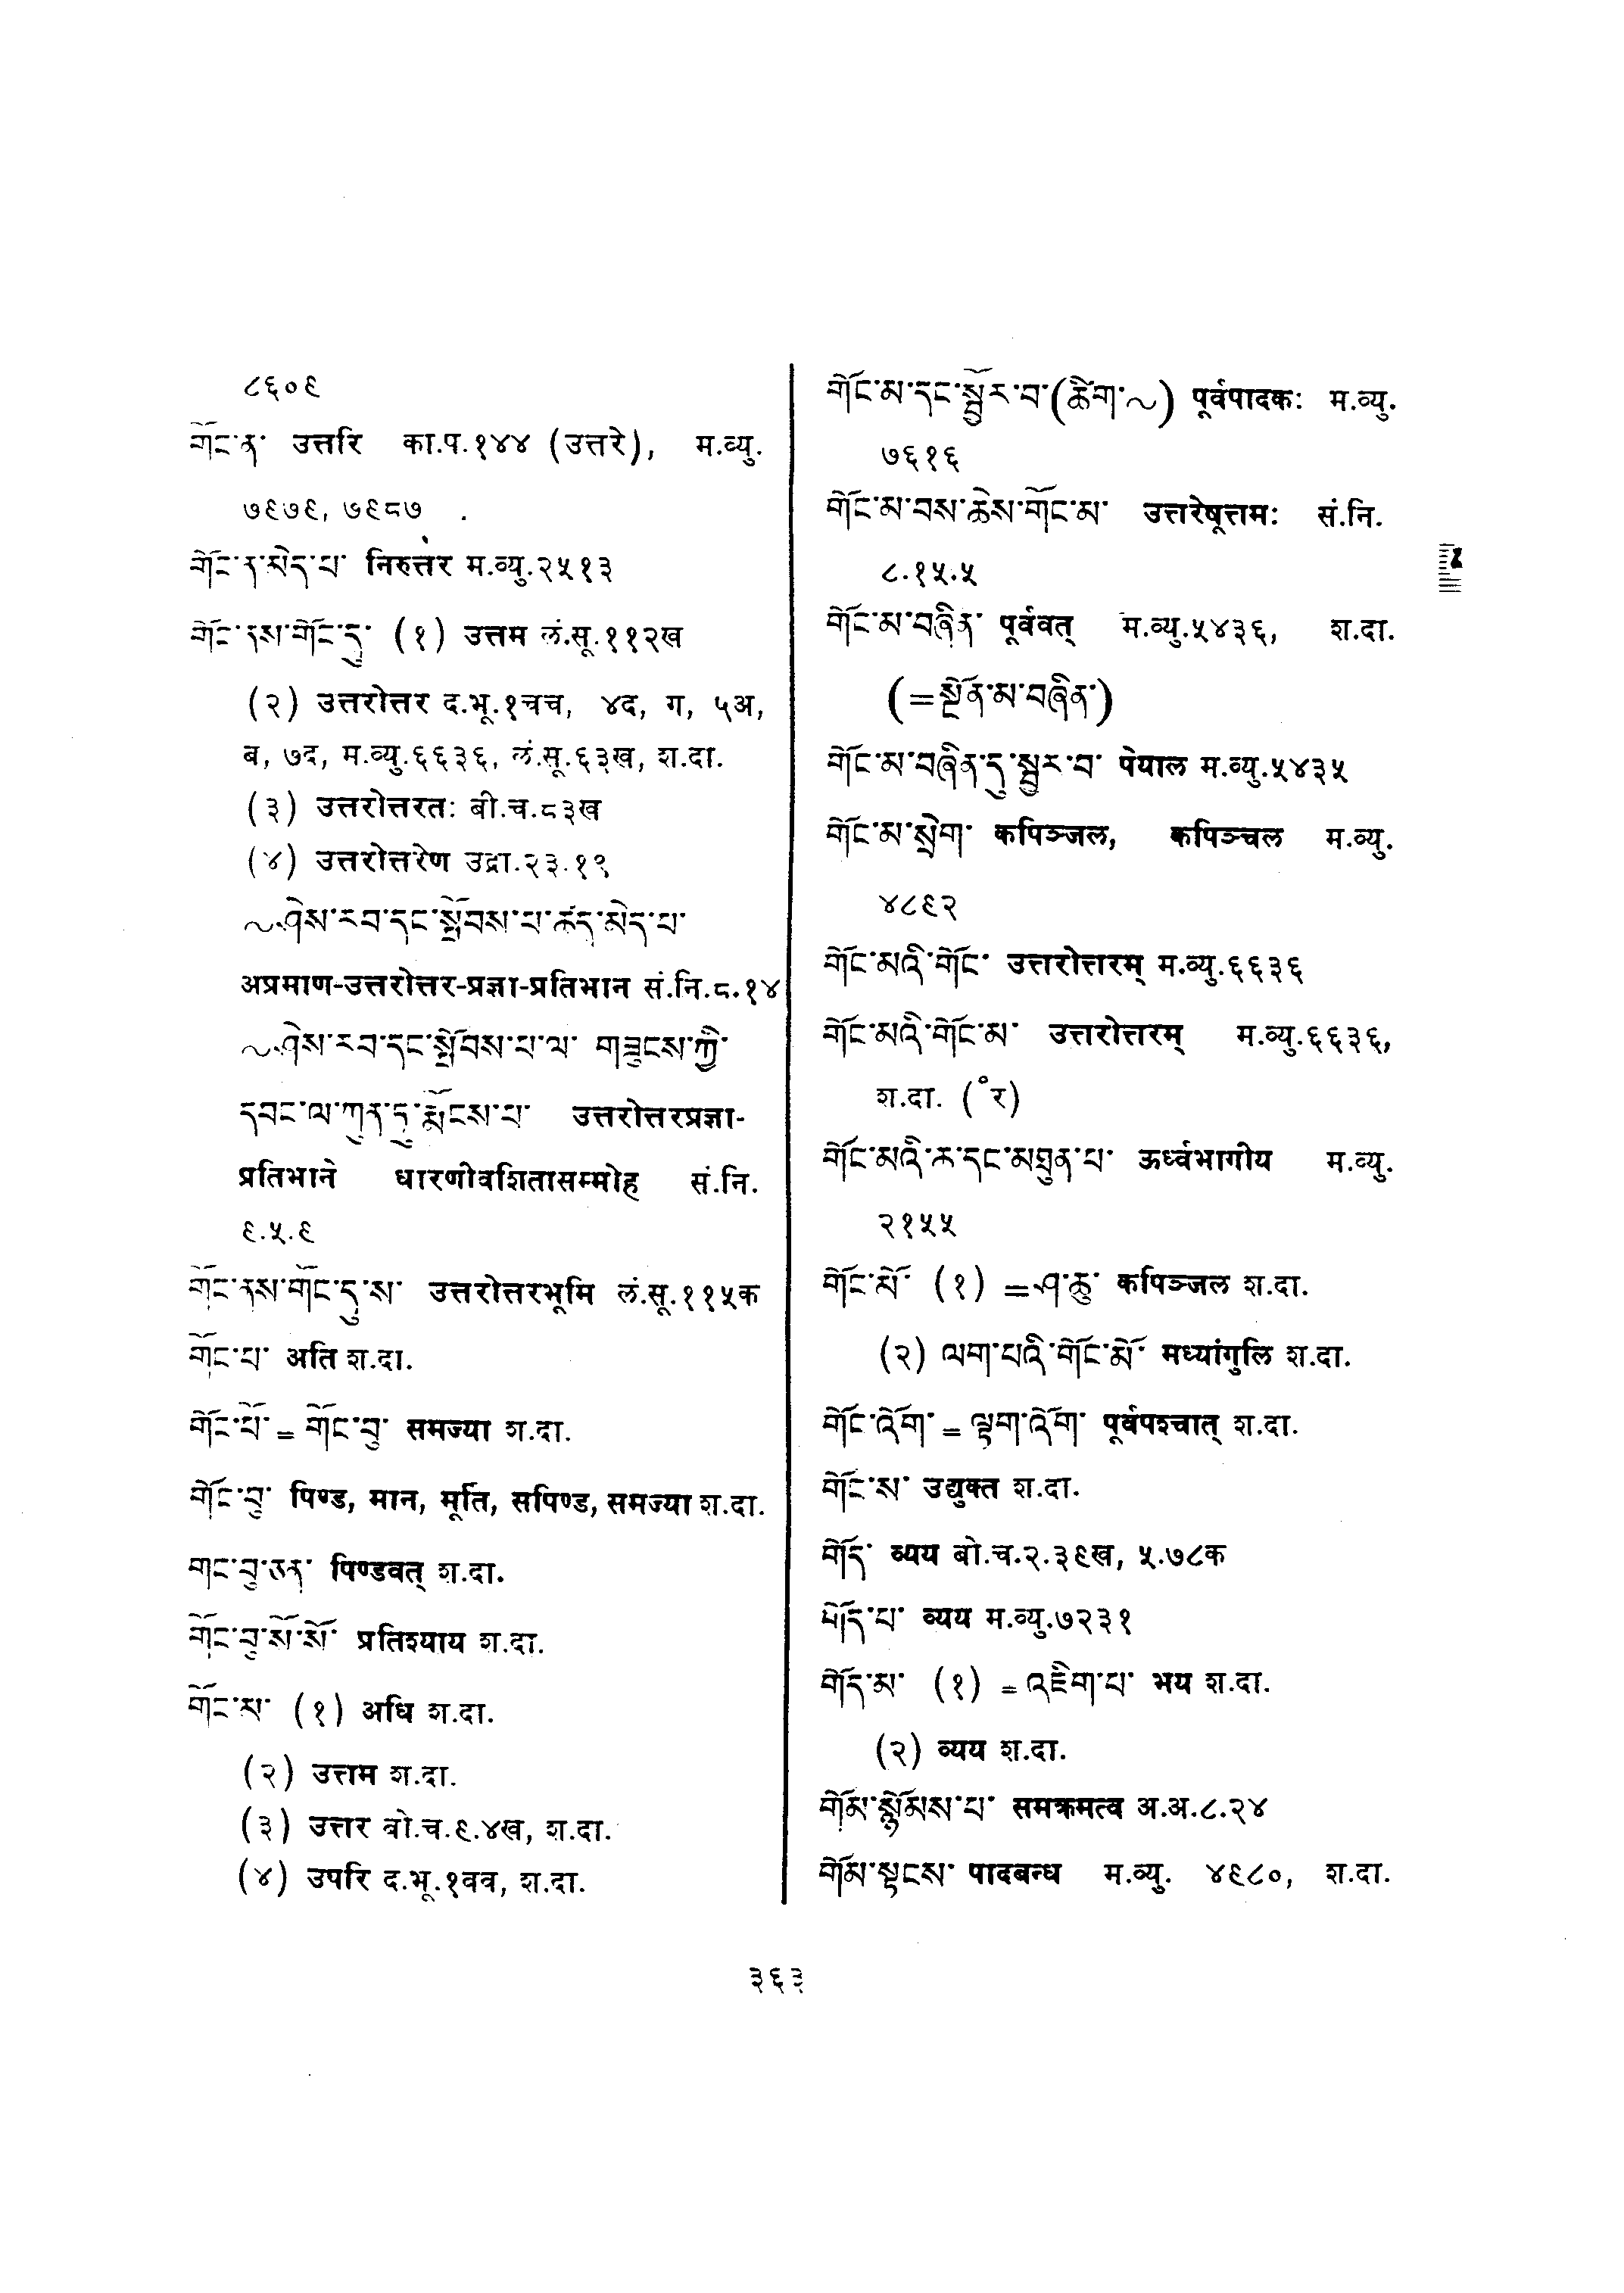 ८६०९
གོང་ན་ उत्तरि का.प.१४४ (उत्तरे), म.व्यु.
७९७९, ७९८७
གོང་ན་མེད་པ་ निरुत्तर म.व्यु.२५१३
གོང་ནས་གོང་དུ་ (१) उत्तम लं.सू.११२ख
(२) उत्तरोत्तर द.भू.१चच, ४द, ग, ५अ,
ब, ७द, म.व्यु.६६३६, लं.सू.६३ख, श.दा.
(३) उत्तरोत्तरतः बी.च.८३ख
(४) उत्तरोत्तरेण उद्रा.२३.१९
~ཤེས་རབ་དང་སྤོབས་པ་ཚད་མེད་པ་
अप्रमाण-उत्तरोत्तर-प्रज्ञा-प्रतिभान सं.नि.८.१४
~ཤེས་རབ་དང་སྤོབས་པ་ལ་ གཟུངས་ཀྱི་
དབང་ལ་ཀུན་ཏུ་རྨོངས་པ་ उत्तरोत्तरप्रज्ञा-
प्रतिभाने धारणीवशितासम्मोह सं.नि.
९.५.९
གོང་ནས་གོང་དུ་ས་ उत्तरोत्तरभूमि लं.सू.११५क
གོང་པ་ अति श.दा.
གོང་པོ་ = གོང་བུ་ समज्या श.दा.
གོང་བུ་ पिण्ड, मान, मूर्ति, सपिण्ड, समज्या श.दा.
གང་བུ་ཅན་ पिण्डवत् श.दा.
གོང་བུ་སོ་སོ་ प्रतिश्याय श.दा.
གོང་མ་ (१) अधि श.दा.
(२) उत्तम श.दा.
(३) उत्तर बो.च.९.४ख, श.दा.
(४) उपरि द.भू.१वव, श.दा.
གོང་མ་དང་སྦྱོར་བ་(ཚིག་~) पूर्वपादकः म.व्यु.
७६१६
གོང་མ་བས་ཆེས་གོང་མ་ उत्तरेषूत्तमः सं.नि.
८.१५.५
གོང་མ་བཞིན་ पूर्ववत् म.व्यु.५४३६, श.दा.
(=སྔོན་མ་བཞིན་)
གོང་མ་བཞིན་དུ་སྦྱར་བ་ पेयाल म.व्यु.५४३५
གོང་མ་སྲེག་ कपिञ्जल, कपिञ्चल म.व्यु.
४८९२
གོང་མའི་གོང་ उत्तरोत्तरम् म.व्यु.६६३६
གོང་མའི་གོང་མ་ उत्तरोत्तरम् म.व्यु.६६३६,
श.दा. (°र)
གོང་མའི་ཆ་དང་མཐུན་པ་ ऊर्ध्वभागीय म.व्यु.
२१५५
གོང་མོ་ (१) =ཤ་ཆུ་ कपिञ्जल श.दा.
(२) ལག་པའི་གོང་མོ་ मध्यांगुलि श.दा.
གོང་འོག་ = ལྟག་འོག་ पूर्वपश्चात् श.दा.
གོང་ས་ उद्युक्त श.दा.
གོད་ व्यय बो.च.२.३९ख, ५.७८क
གོད་པ་ व्यय म.व्यु.७२३१
གོད་མ་ (१) = འཇིག་པ་ भय श.दा.
(२) व्यय श.दा.
གོམ་སྙོམས་པ་ समक्रमत्व अ.अ.८.२४
གོམ་སྟངས་ पादबन्ध म.व्यु. ४९८०, श.दा.
३६३